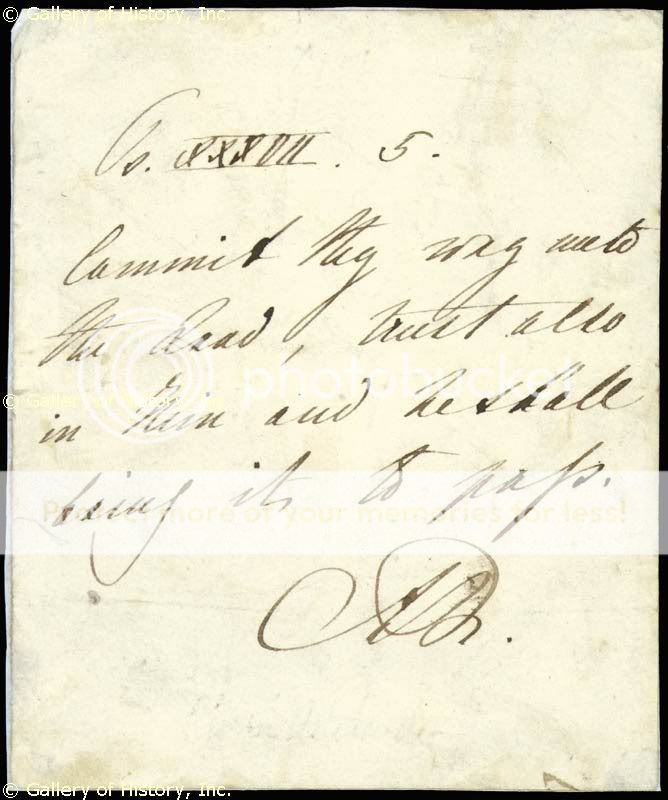 © Gallery of History, Inc.
Ps. XXXVII. 5.
Commit thy way unto
the Lord, trust also
© Gallery of History, Inc.
photobucket
in Him and he shall
bring it to pass.
Protect more of your memories for less!
AR.
© Gallery of History, Inc.